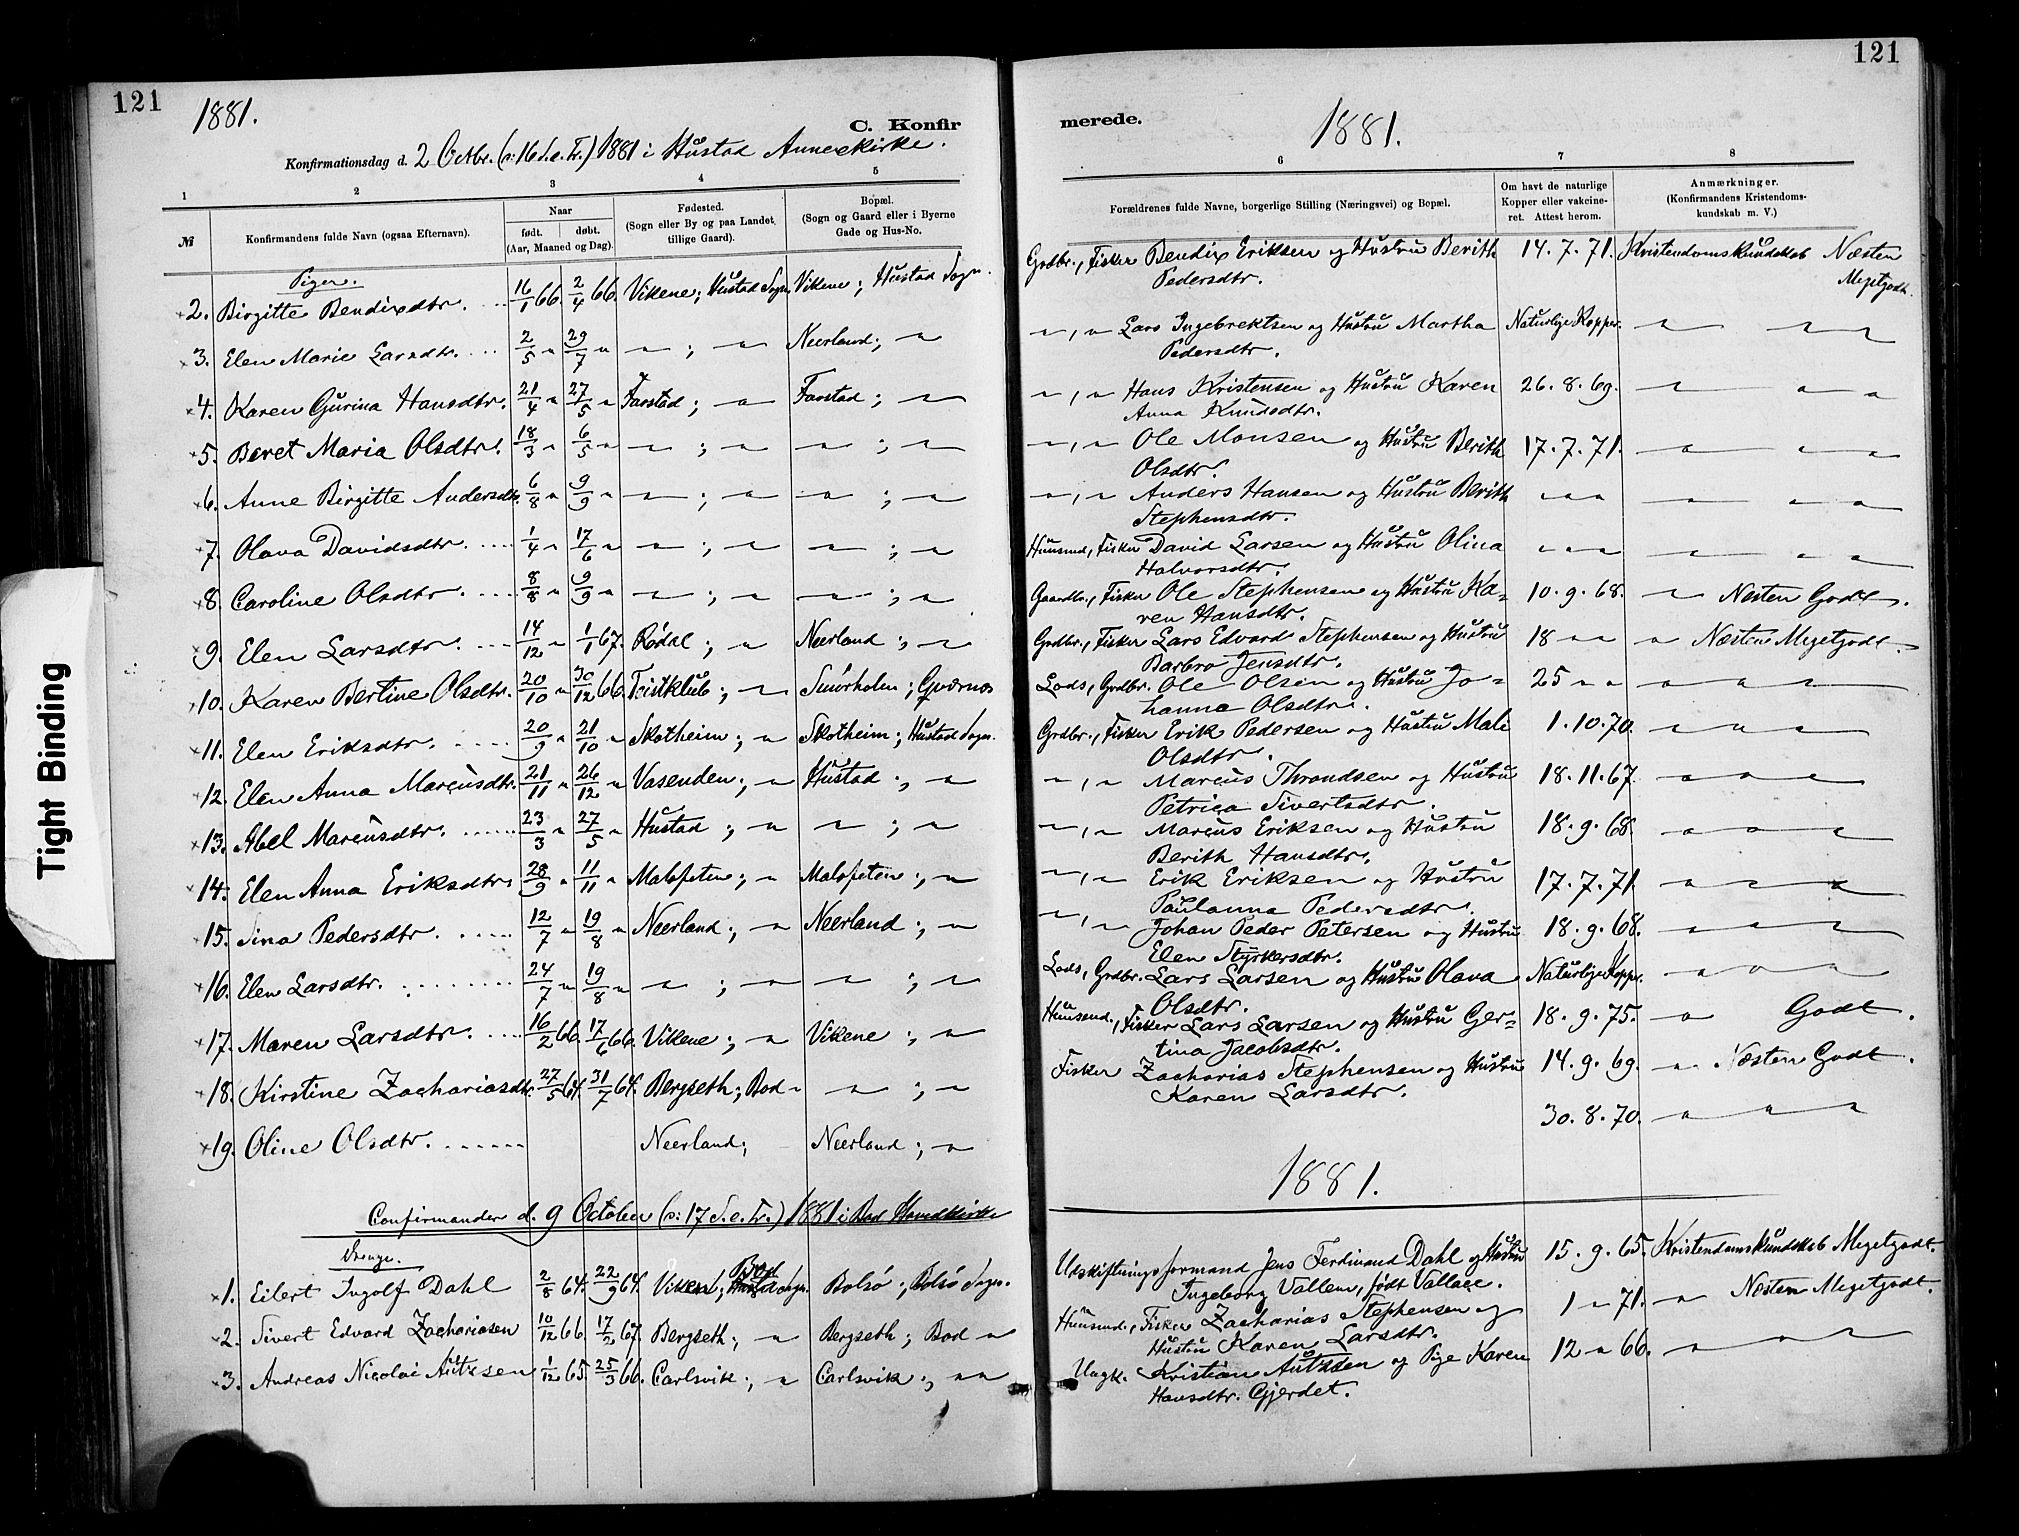 121
1881.
C. Konfir
Konfirmationsdag d. 2 Octbr. (o: 16 S. e. Tr.) 1881 i Hustad Annexkirke.
1 2 3 4 5
№ Konfirmandens fulde Navn (ogsaa Efternavn). Naar født. døbt. (Aar, Maaned og Dag). Fødested. (Sogn eller By og paa Landet, tillige Gaard). Bopæl. (Sogn og Gaard eller i Byerne Gade og Hus-No.
Piger.
2. Birgitte Bendixdtr. 16/1 66. 2/4 66. Vikene; Hustad Sogn. Vikene; Hustad Sogn.
3. Elen Marie Larsdtr. 2/5 " 29/7 " " ; " Neerland; "
4. Karen Gurina Hansdtr. 21/4 " 27/5 " Farstad; " Farstad; "
5. Beret Maria Olsdtr. 18/3 " 6/5 " " ; " " ; "
6. Anne Birgitte Andersdtr. 6/8 " 9/9 " " ; " " ; "
7. Olava Davidsdtr. 1/4 " 17/6 " " ; " " ; "
8. Caroline Olsdtr. 8/8 " 9/9 " " ; " " ; "
9. Elen Larsdtr. 14/12 " 1/1 67. Rødal; " Neerland; "
10. Karen Bertine Olsdtr. 20/10 " 30/12 66. Teistklub; " Smørholm; Qværnæs
11. Elen Eriksdtr. 20/9 " 21/10 " Skotheim; " Skotheim; Hustad Sogn.
12. Elen Anna Marcusdtr. 21/11 " 26/12 " Vasenden; " Hustad; "
13. Abel Marcusdtr. 23/3 " 27/5 " Hustad; " " ; "
14. Elen Anna Eriksdtr. 28/9 " 11/11 " Malefeten; " Malefeten; "
15. Sina Pedersdtr. 12/7 " 19/8 " Neerland; " Neerland; "
16. Elen Larsdtr. 24/7 " 19/8 " " ; " " ; "
17. Maren Larsdtr. 16/2 66. 17/6 66. Vikene; " Vikene; "
18. Kirstine Zachariasdtr. 27/5 64. 31/7 64. Bergseth; Bod " " ; "
19. Oline Olsdtr. Neerland; Neerland; "
Confirmander d. 9 October (o: 17 S. e. Tr.) 1881 i Bod Hovedkirke
Drenge.
1. Eilert Ingolf Dahl 2/8 64. 22/9 64. Viken; Bod Hustad Sogn. Bolsø; Bolsø Sogn.
2. Sivert Edvard Zachariasen 10/12 66. 17/2 67. Bergseth; " Bergseth; Bod "
3. Andreas Nicolai Autssen 1/12 65. 25/3 66. Carlsvik; " Carlsvik; " "
121
merede.
1881.
6 7 8
Forældrenes fulde Navne, borgerlige Stilling (Næringsvei) og Bopæl. Om havt de naturlige Kopper eller vakcineret. Attest herom. Anmærkninger. (Konfirmandens Kristendomskundskab m. V.)
Grdbr., Fisker Bendix Eriksen og Hustru Berith 14. 7. 71. Kristendomskundskab Næsten
Pedersdtr. Megetgodt.
" , " Lars Ingebrektsen og Hustru Martha Naturlige Kopper. " " "
Pedersdtr.
" , " Hans Kristensen og Hustru Karen 26. 8. 69. " " "
Anna Knudsdtr.
" , " Ole Monsen og Hustru Berith 17. 7. 71. " " "
Olsdtr.
" , " Anders Hansen og Hustru Berith " " " " " "
Stephensdtr.
Huusmd., Fisker David Larsen og Hustru Olina " " " " " "
Halvorsdtr.
Gaardbr., Fisker Ole Stephensen og Hustru Ka- 10. 9. 68. " Næsten Godt.
ren Hansdtr.
Grdbr., Fisker Lars Edvard Stephensen og Hustru 18 " " " Næsten Megetgodt.
Barbro Jensdtr.
Lods, Grdbr. Ole Olsen og Hustru Jo- 25 " " " " "
hanna Olsdtr.
Grdbr., Fisker Erik Pedersen og Hustru Mali 1. 10. 70. " " "
Olsdtr.
" , " Marcus Throndsen og Hustru 18. 11. 67. " " "
Petrica Sivertsdtr.
" , " Marcus Eriksen og Hustru 18. 9. 68. " " "
Berith Hansdtr.
" , " Erik Eriksen og Hustru 17. 7. 71. " " "
Paulanna Pedersdtr.
" , " Johan Peder Petersen og Hustru 18. 9. 68. " " "
Elen Styrkersdtr.
Lods, Grdbr. Lars Larsen og Hustru Olava Naturlige Kopper. " " "
Olsdtr.
Huusmd., Fisker Lars Larsen og Hustru Ger- 18. 9. 75. " Godt.
tina Jacobsdtr.
Fisker Zacharias Stephensen og Hustru 14. 9. 69. " Næsten Godt.
Karen Larsdtr.
30. 8. 70. " " "
1881.
Udskiftningsformand Jens Ferdinand Dahl og Hustru 15. 9. 65. Kristendomskundskab Megetgodt.
Ingeborg Vallem, født Vallace.
Huusmd., Fisker Zacharias Stephensen og 1 " 71. " Næsten Megetgodt.
Hustru Karen Larsdtr.
Ungk. Kristian Autssen og Pige Karen 12 " 66. " " "
Hansdtr. Gjerdet.
Tight Binding